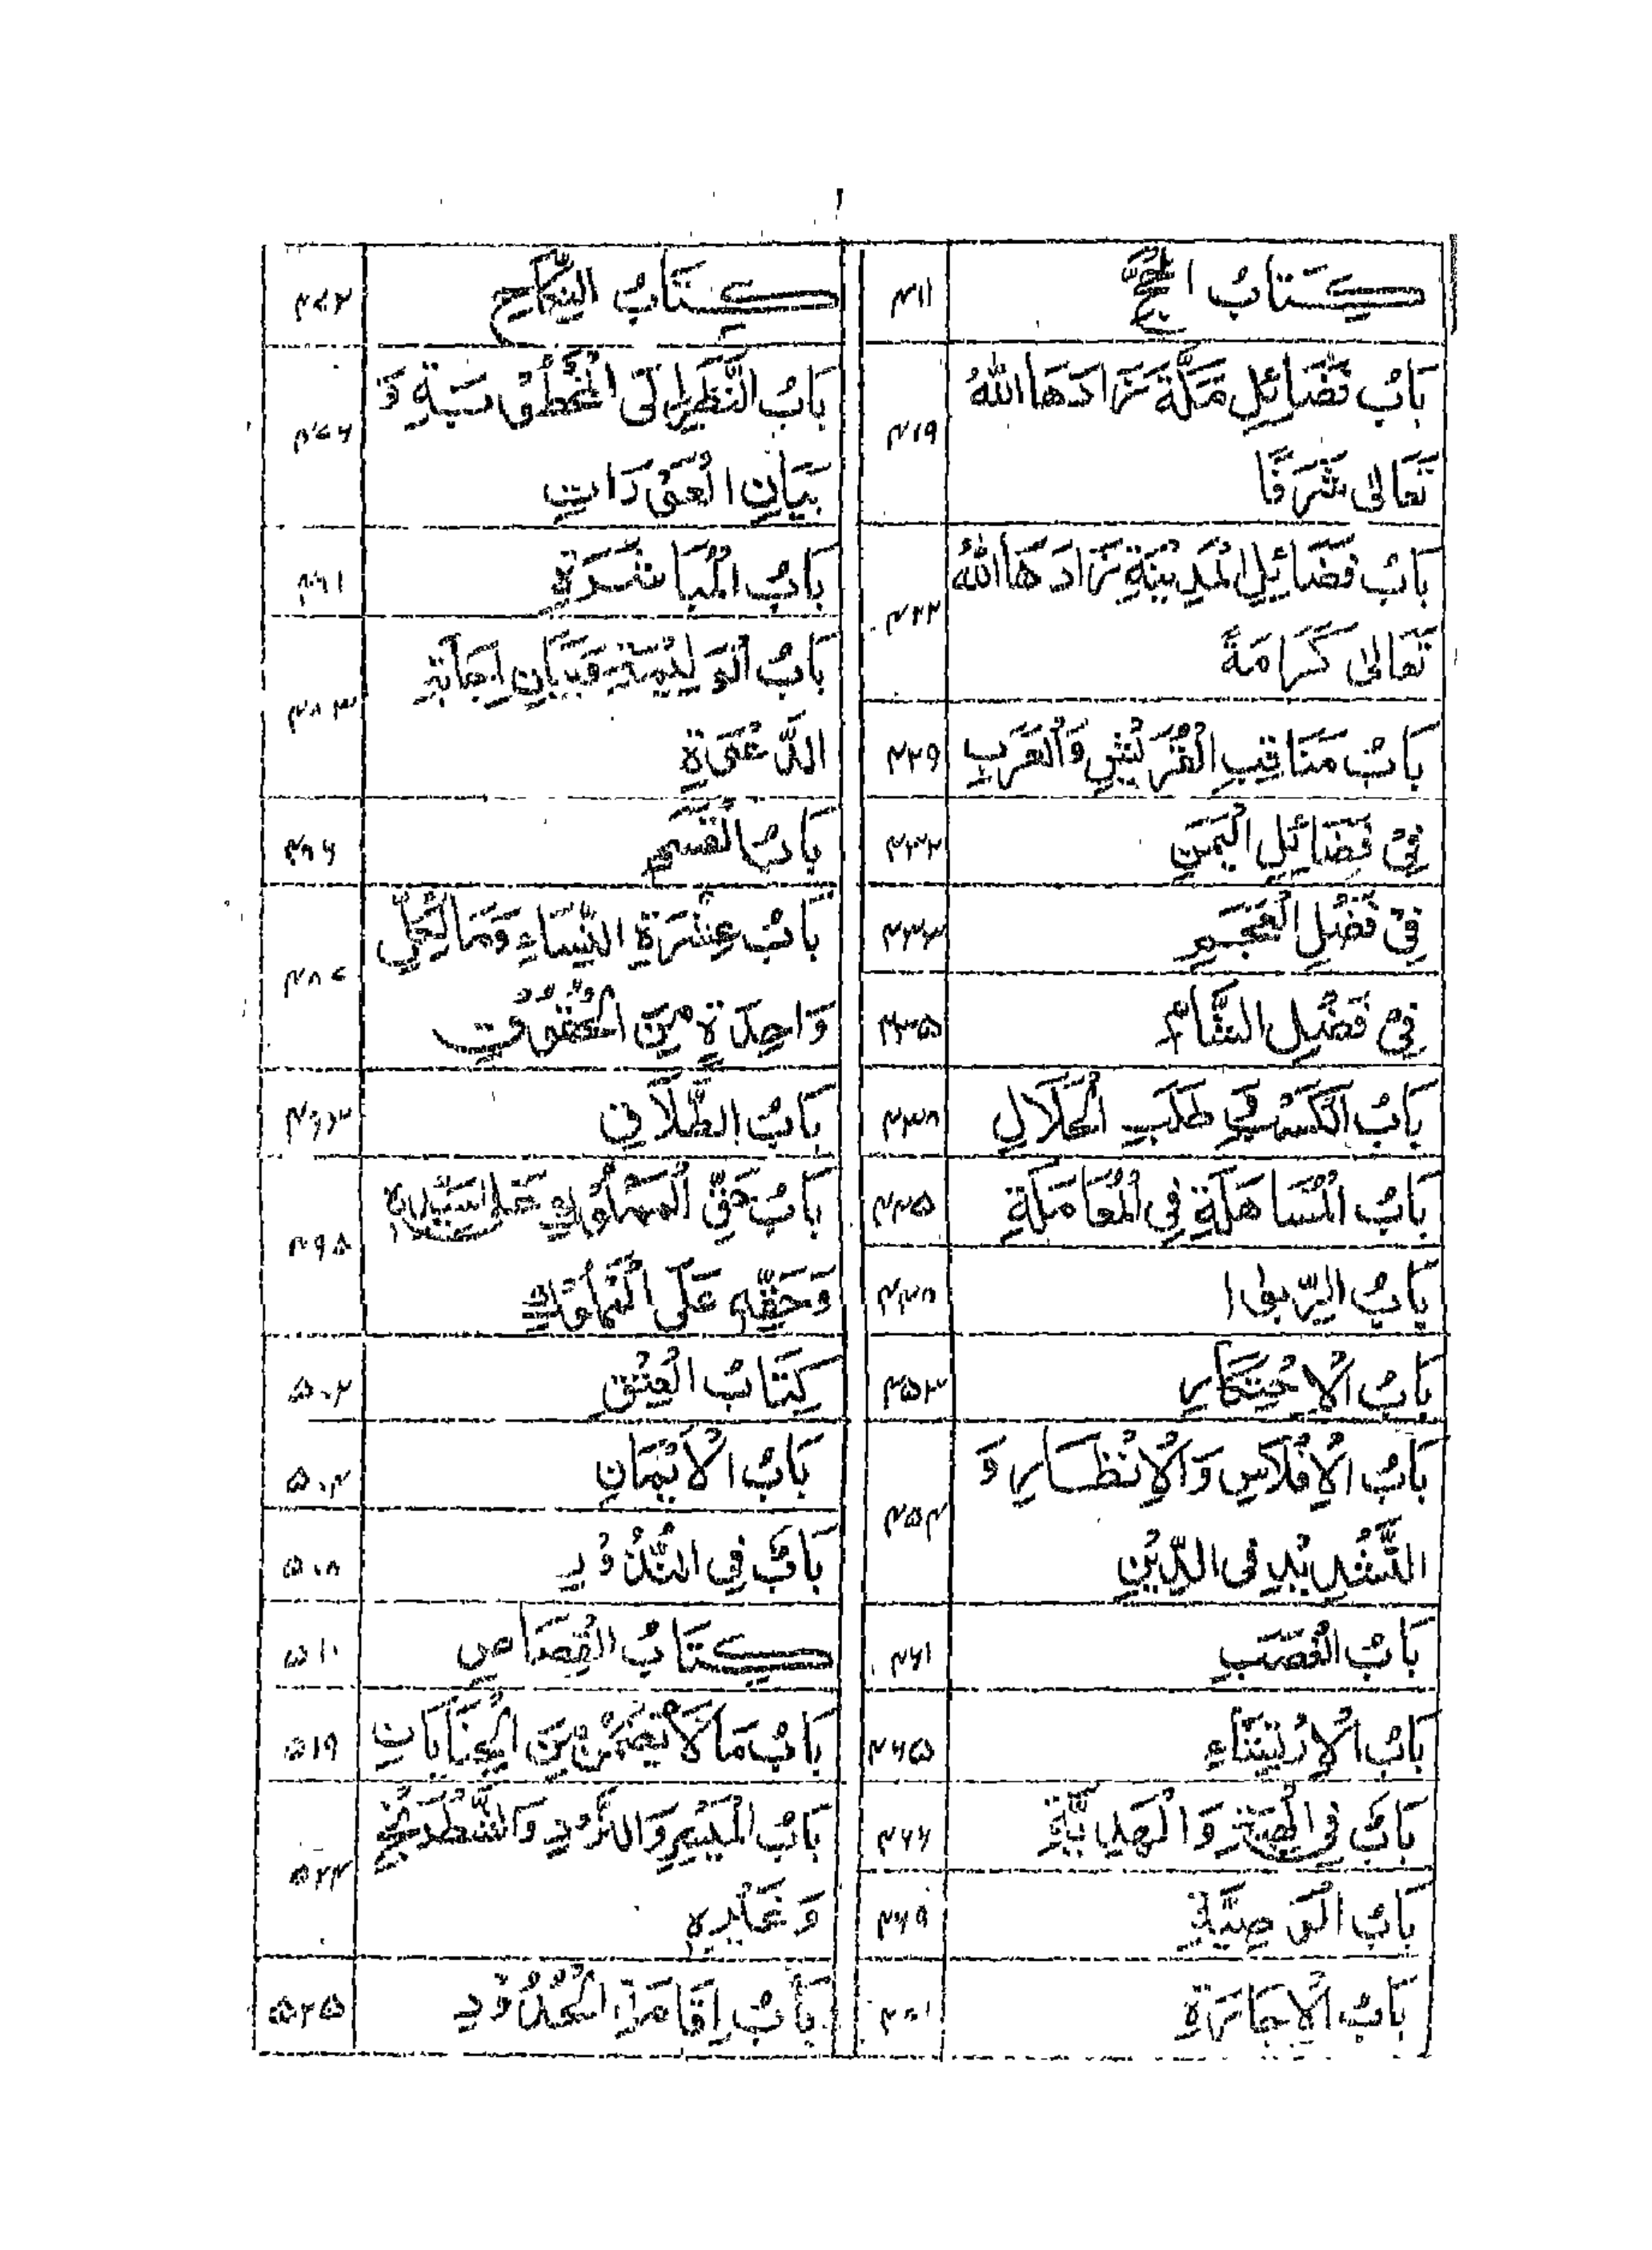 كِتَابُ الْحَجِّ ۴۱۱
بَابُ فَضَائِلِ مَكَّةَ زَادَهَا اللهُ
تَعَالىٰ شَرَفًا ۴۱۹
بَابُ فَضَائِلِ الْمَدِيْنَةِ زَادَهَا اللهُ
تَعَالىٰ كَرَامَةً ۴۲۲
بَابُ مَنَاقِبِ الْقُرَيْشِ وَالْعَرَبِ ۴۲۹
فِيْ فَضَائِلِ الْيَمَنِ ۴۳۲
فِيْ فَضْلِ الْعَجَمِ ۴۳۳
فِيْ فَضْلِ الشَّامِ ۴۳۵
بَابُ الْكَسْبِ فِي طَلَبِ الْحَلَالِ ۴۳۸
بَابُ الْمُسَاهَلَةِ فِي الْمُعَامَلَةِ ۴۴۵
بَابُ الرِّبٰوا ۴۴۸
بَابُ الْاِحْتِكَارِ ۴۵۳
بَابُ الْاِفْلَاسِ وَالْاِنْظَارِ وَ
التَّشْدِيْدِ فِي الدَّيْنِ ۴۵۴
بَابُ الْغَصَبِ ۴۶۱
بَابُ الْاِرْتِشَاءِ ۴۶۵
بَابٌ فِي الْهِبَةِ وَالْهَدِيَّةِ ۴۶۶
بَابُ الْوَصِيَّةِ ۴۶۹
بَابُ الْاِجَارَةِ
كِتَابُ النِّكَاحِ ۴۷۳
بَابُ النَّظْرِ اِلَى الْمَخْطُوْبَةِ وَ
بَيَانِ الْعَوْرَاتِ ۴۷۶
بَابُ الْمُبَاشَرَةِ
بَابُ الْوَلِيْمَةِ وَبَيَانِ اِجَابَةِ
الدَّعْوَةِ ۴۸۳
بَابُ الْقَسْمِ
بَابُ عِشْرَةِ النِّسَاءِ وَمَا لِكُلِّ
وَاحِدَةٍ مِنَ الْحُقُوْقِ ۴۸۷
بَابُ الطَّلَاقِ
بَابُ حَقِّ الْمَمْلُوْكِ عَلٰى سَيِّدِهٖ
وَحَقِّهٖ عَلَى الْمَمْلُوْكِ ۴۹۸
كِتَابُ الْعِتْقِ ۵۰۲
بَابُ الْاَيْمَانِ ۵۰۴
بَابٌ فِي النُّذُوْرِ ۵۰۸
كِتَابُ الْقِصَاصِ ۵۱۰
بَابُ مَا لَا يُضْمَنُ مِنَ الْجِنَايَاتِ ۵۱۹
بَابُ الْمَيْسِرِ وَالنَّرْدِ وَالشَّطْرَنْجِ
وَغَيْرِهٖ ۵۲۳
بَابُ اِقَامَةِ الْحُدُوْدِ ۵۲۵